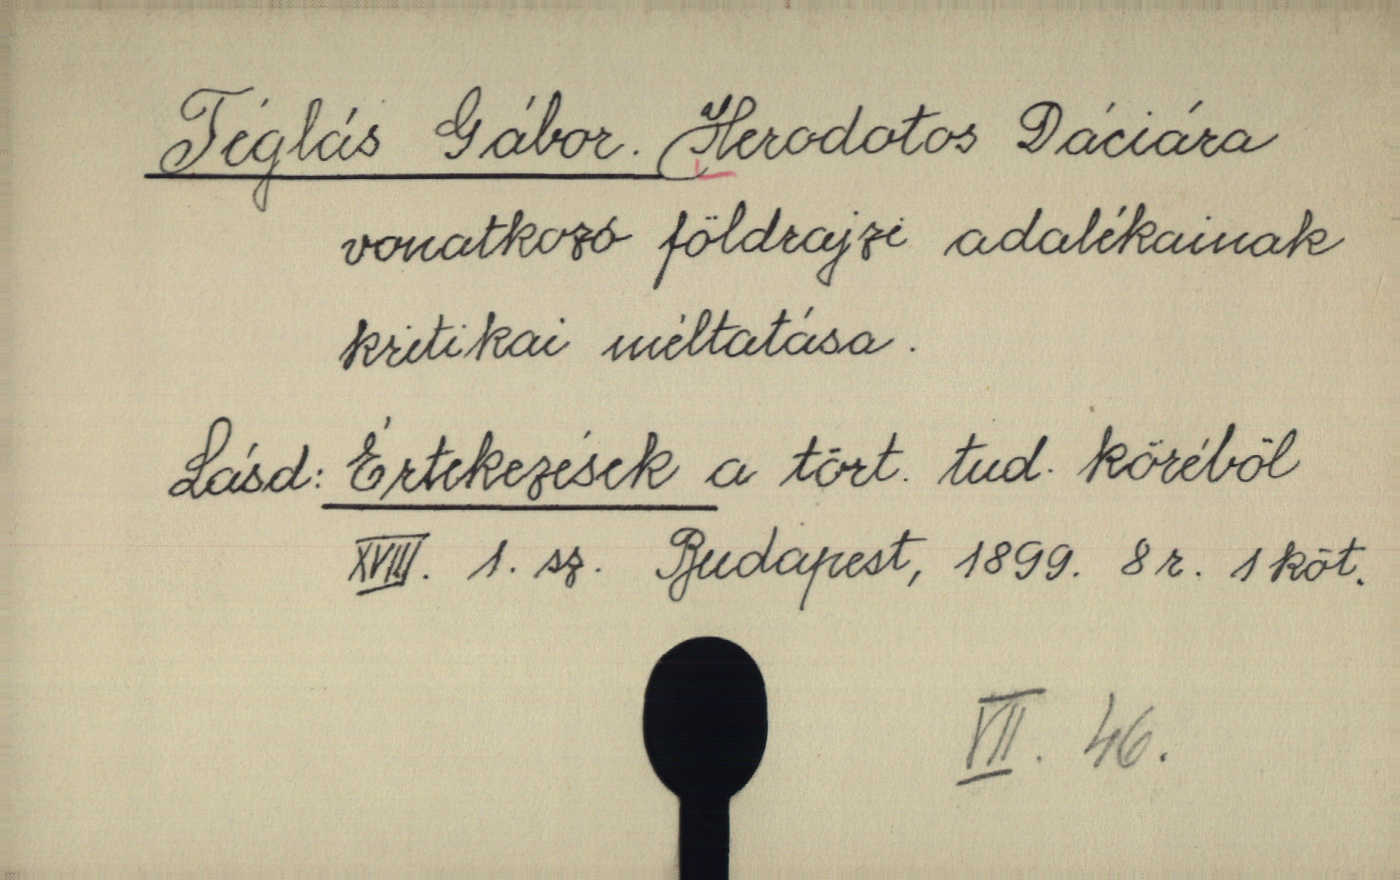 Téglás Gábor. Herodotos Dáciára
vonatkozó földrajzi adalékainak
kritikai méltatása.
Lásd: Értekezések a tört. tud. köréből
XVIII. 1. sz. Budapest, 1899. 8 r. 1 köt.
VII. 46.